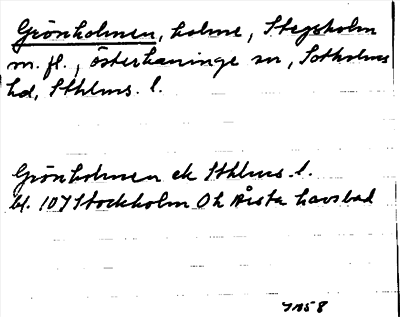 Grönholmen, holme, Stegsholm
m. fl., österhaninge sn, Sotholms
hd, Sthlms. l.
Grönholmen ek Sthlms. l.
bl. 107 Stockholm Oh Årsta havsbad